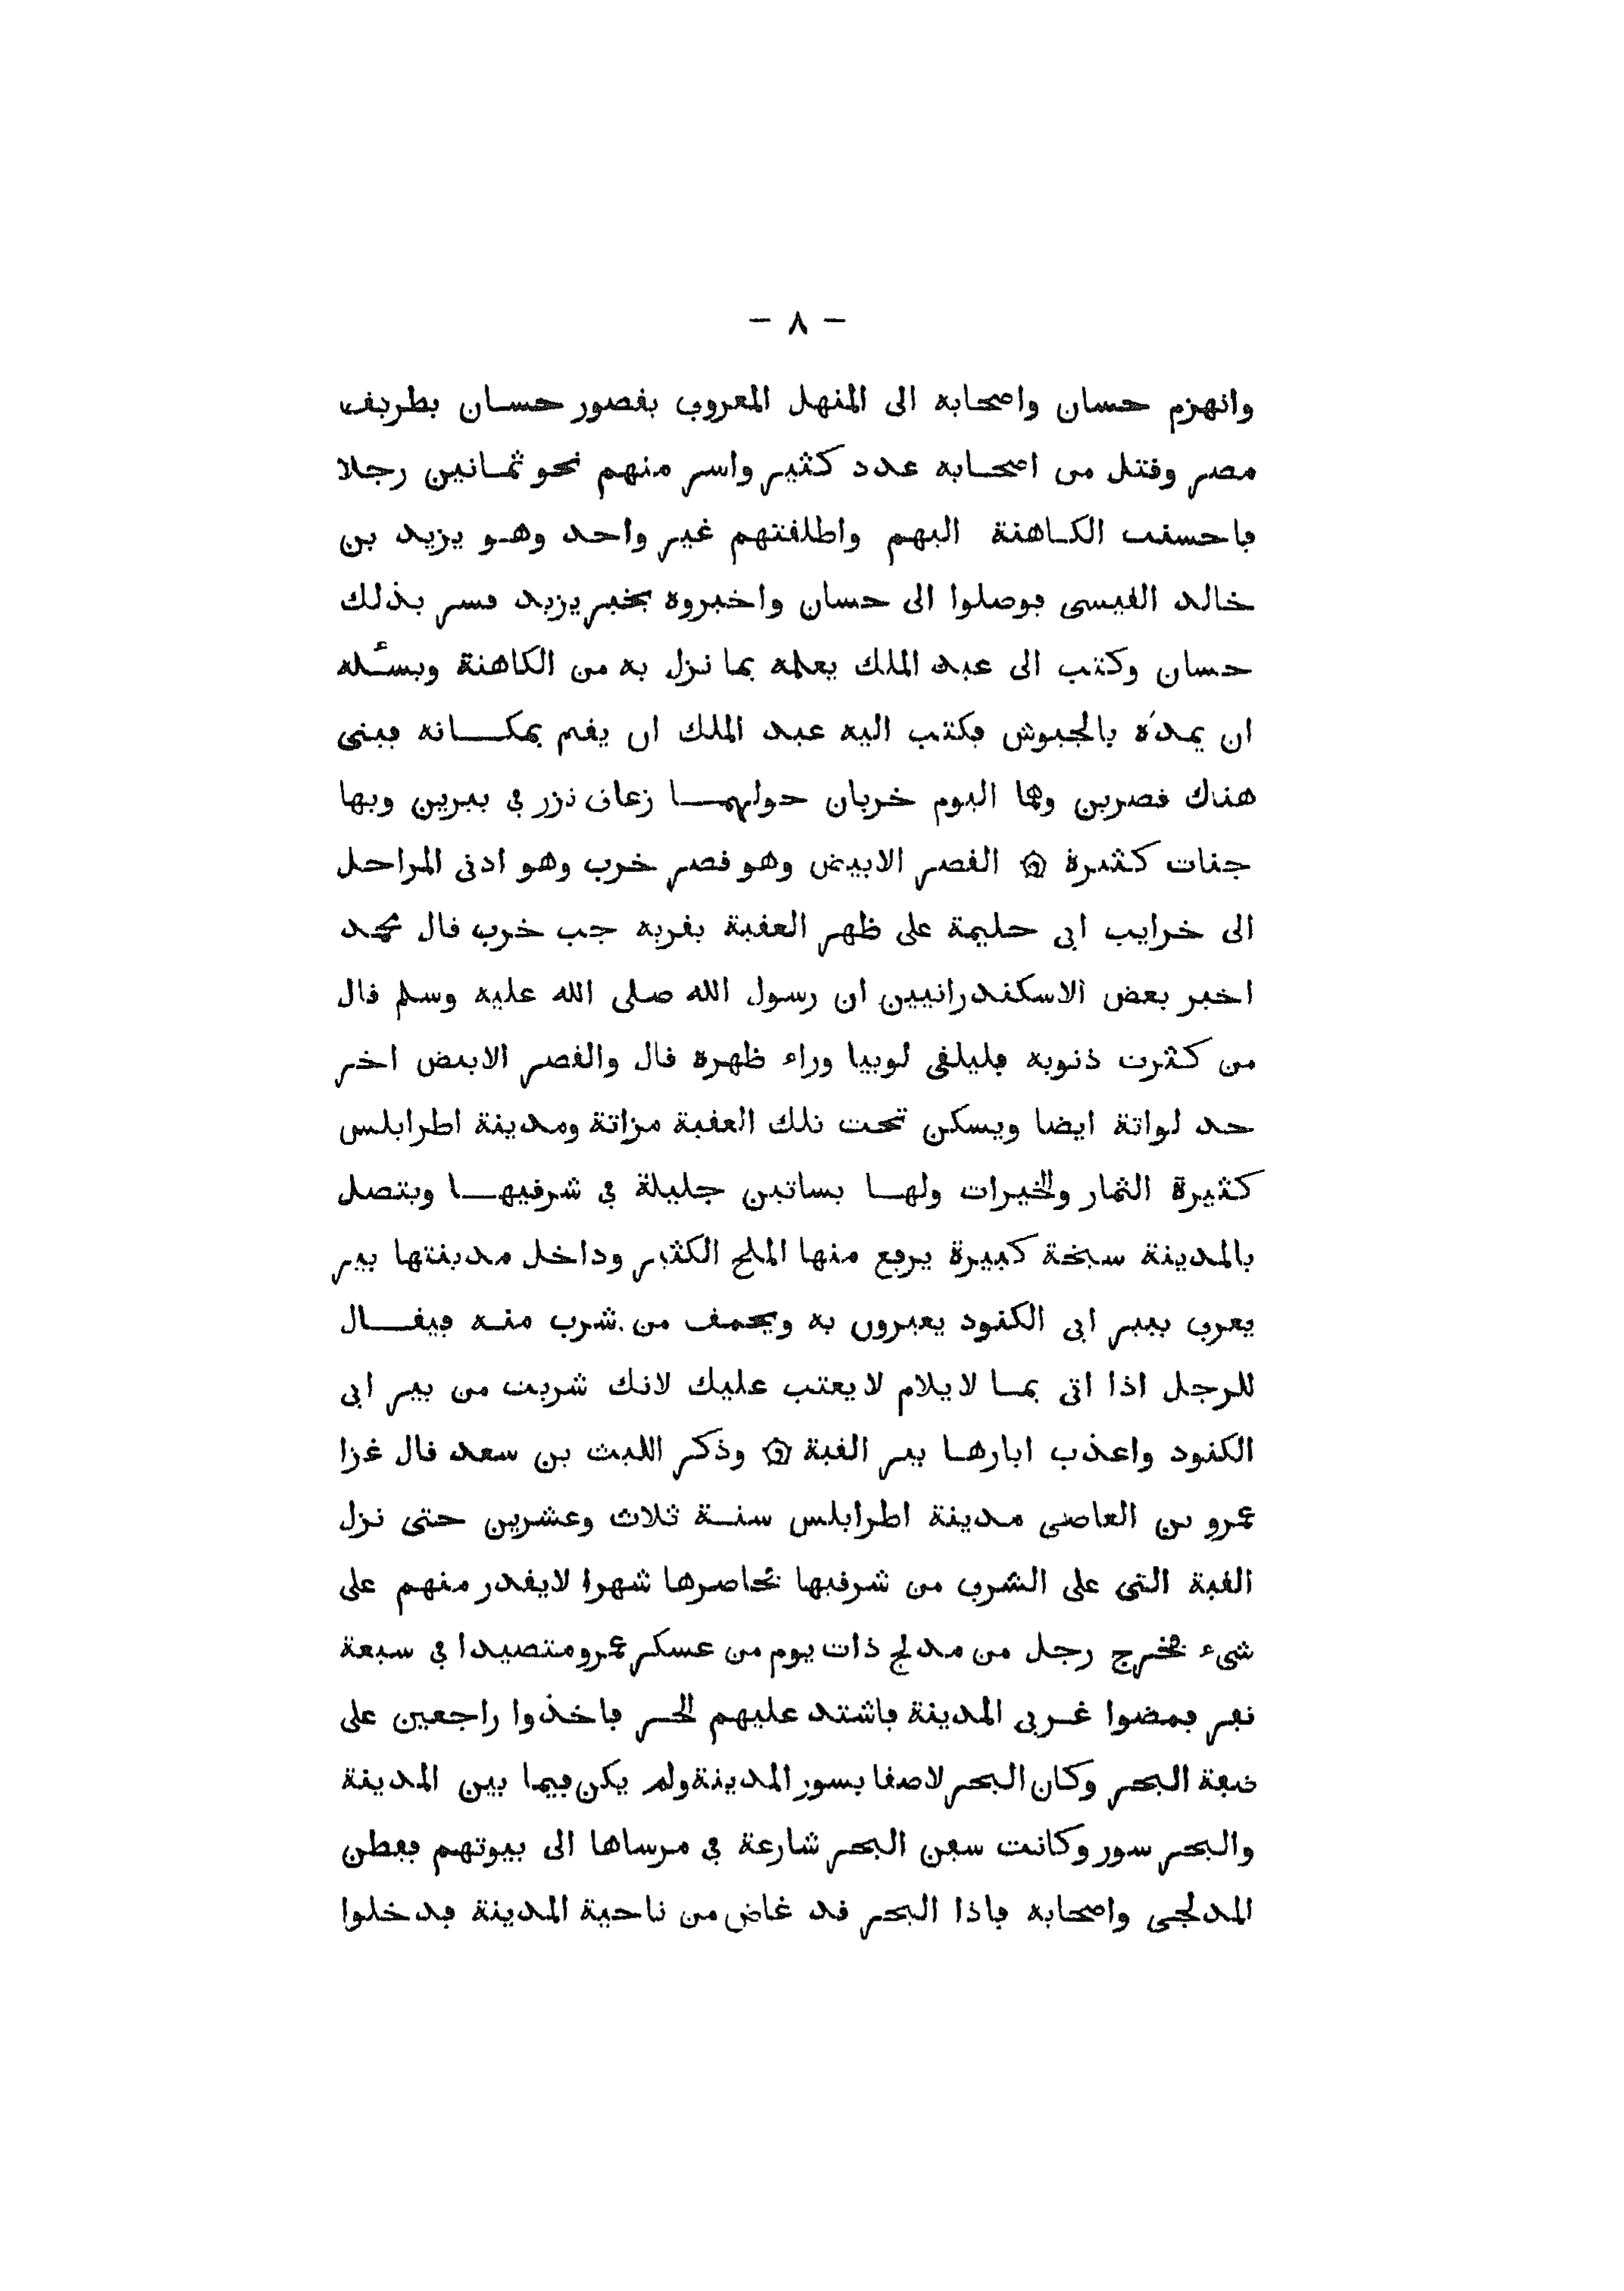 - ٨ -
وانهزم حسان واصحابه الى المنهل المعروف بقصور حسان بطريق
مصر وقتل من اصحابه عدد كثير واسر منهم نحو ثمانين رجلا
فاحسنت الكاهنة اليهم واطلقتهم غير واحد وهو يزيد بن
خالد القيسى فوصلوا الى حسان واخبروه بخبر يزيد فسر بذلك
حسان وكتب الى عبد الملك يعلمه بما نزل به من الكاهنة ويسئله
ان يمدّه بالجيوش فكتب اليه عبد الملك ان يقم بمكانه فبنى
هناك قصرين وهما اليوم خربان حولهما زعاق نزر فى بيرين وبها
جنات كثيرة ۞ القصر الابيض وهو قصر خرب وهو ادنى المراحل
الى خرايب ابى حليمة على ظهر العقبة بقربه جب خرب قال محمد
اخبر بعض الاسكندرانيين ان رسول الله صلى الله عليه وسلم قال
من كثرت ذنوبه فليلقى لوبيا وراء ظهره قال والقصر الابيض اخر
حد لواتة ايضا ويسكن تحت تلك العقبة مزاتة ومدينة اطرابلس
كثيرة الثمار والخيرات ولها بساتين جليلة فى شرقيها ويتصل
بالمدينة سبخة كبيرة يرفع منها الملح الكثير وداخل مدينتها بير
يعرف ببير ابى الكنود يعيرون به ويحمق من شرب منه فيقال
للرجل اذا اتى بما لا يلام لا يعتب عليك لانك شربت من بير ابى
الكنود واعذب ابارها بير القبة ۞ وذكر الليث بن سعد قال غزا
عمرو بن العاصى مدينة اطرابلس سنة ثلاث وعشرين حتى نزل
القبة التى على الشرف من شرقيها فحاصرها شهرا لا يقدر منهم على
شىء فخرج رجل من مدلج ذات يوم من عسكر عمرو متصيدا فى سبعة
نفر فمضوا غربى المدينة فاشتد عليهم الحر فاخذوا راجعين على
ضفة البحر وكان البحر لاصقا بسور المدينة ولم يكن فيما بين المدينة
والبحر سور وكانت سفن البحر شارعة فى مرساها الى بيوتهم ففطن
المدلجى واصحابه فاذا البحر قد غاض من ناحية المدينة فدخلوا